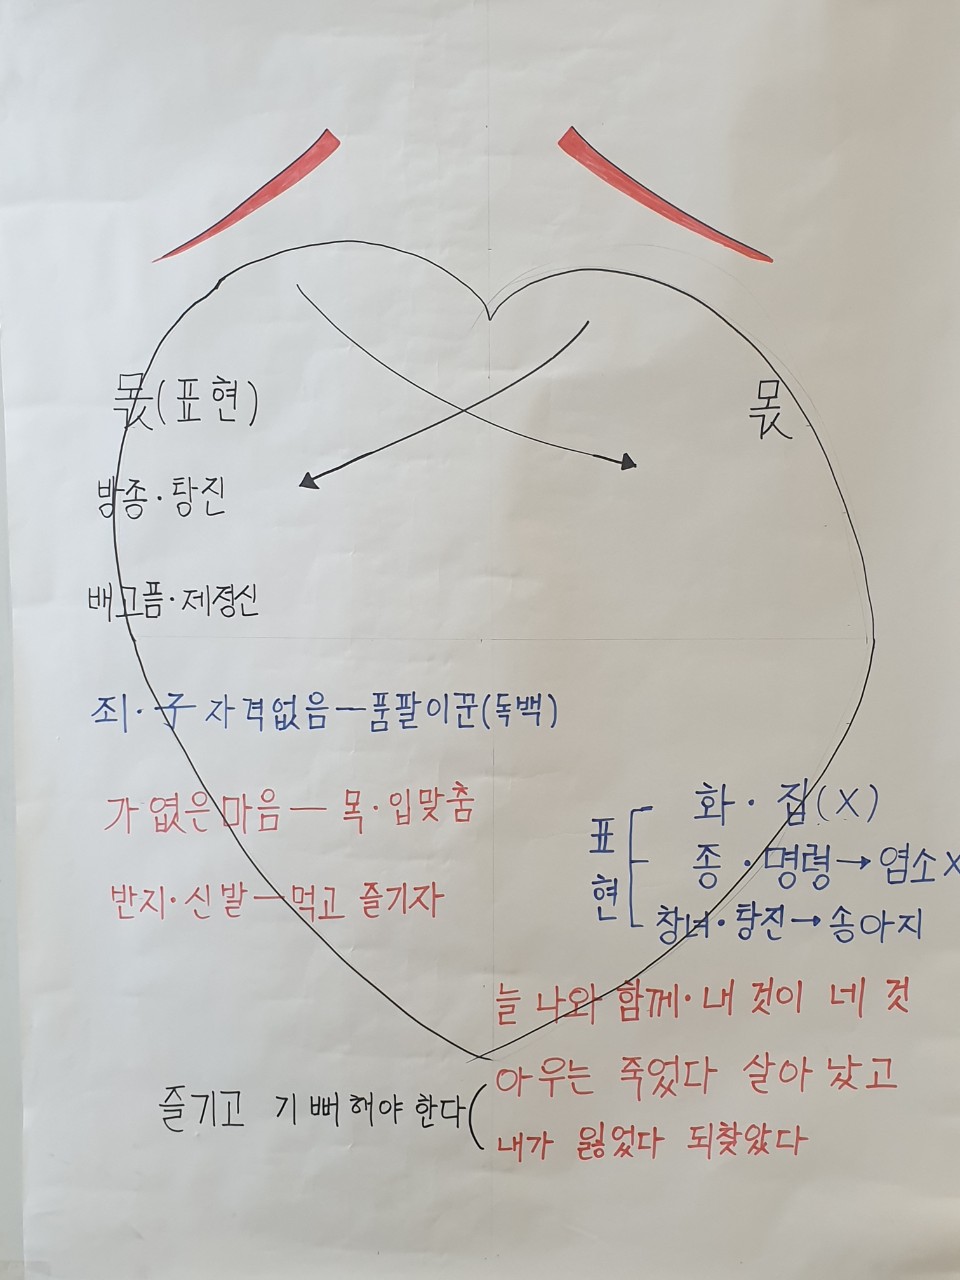 몫(표현)
방종·탕진
배고픔·제정신
죄·子 자격없음—품팔이꾼(독백)
가엾은마음— 목·입맞춤
반지·신발—먹고 즐기자
몫
표현
화·집(X)
종·명령→염소X
창녀·탕진→송아지
늘 나와 함께·내 것이 네 것
즐기고 기뻐해야한다(
아우는 죽었다 살아났고
내가 잃었다 되찾았다